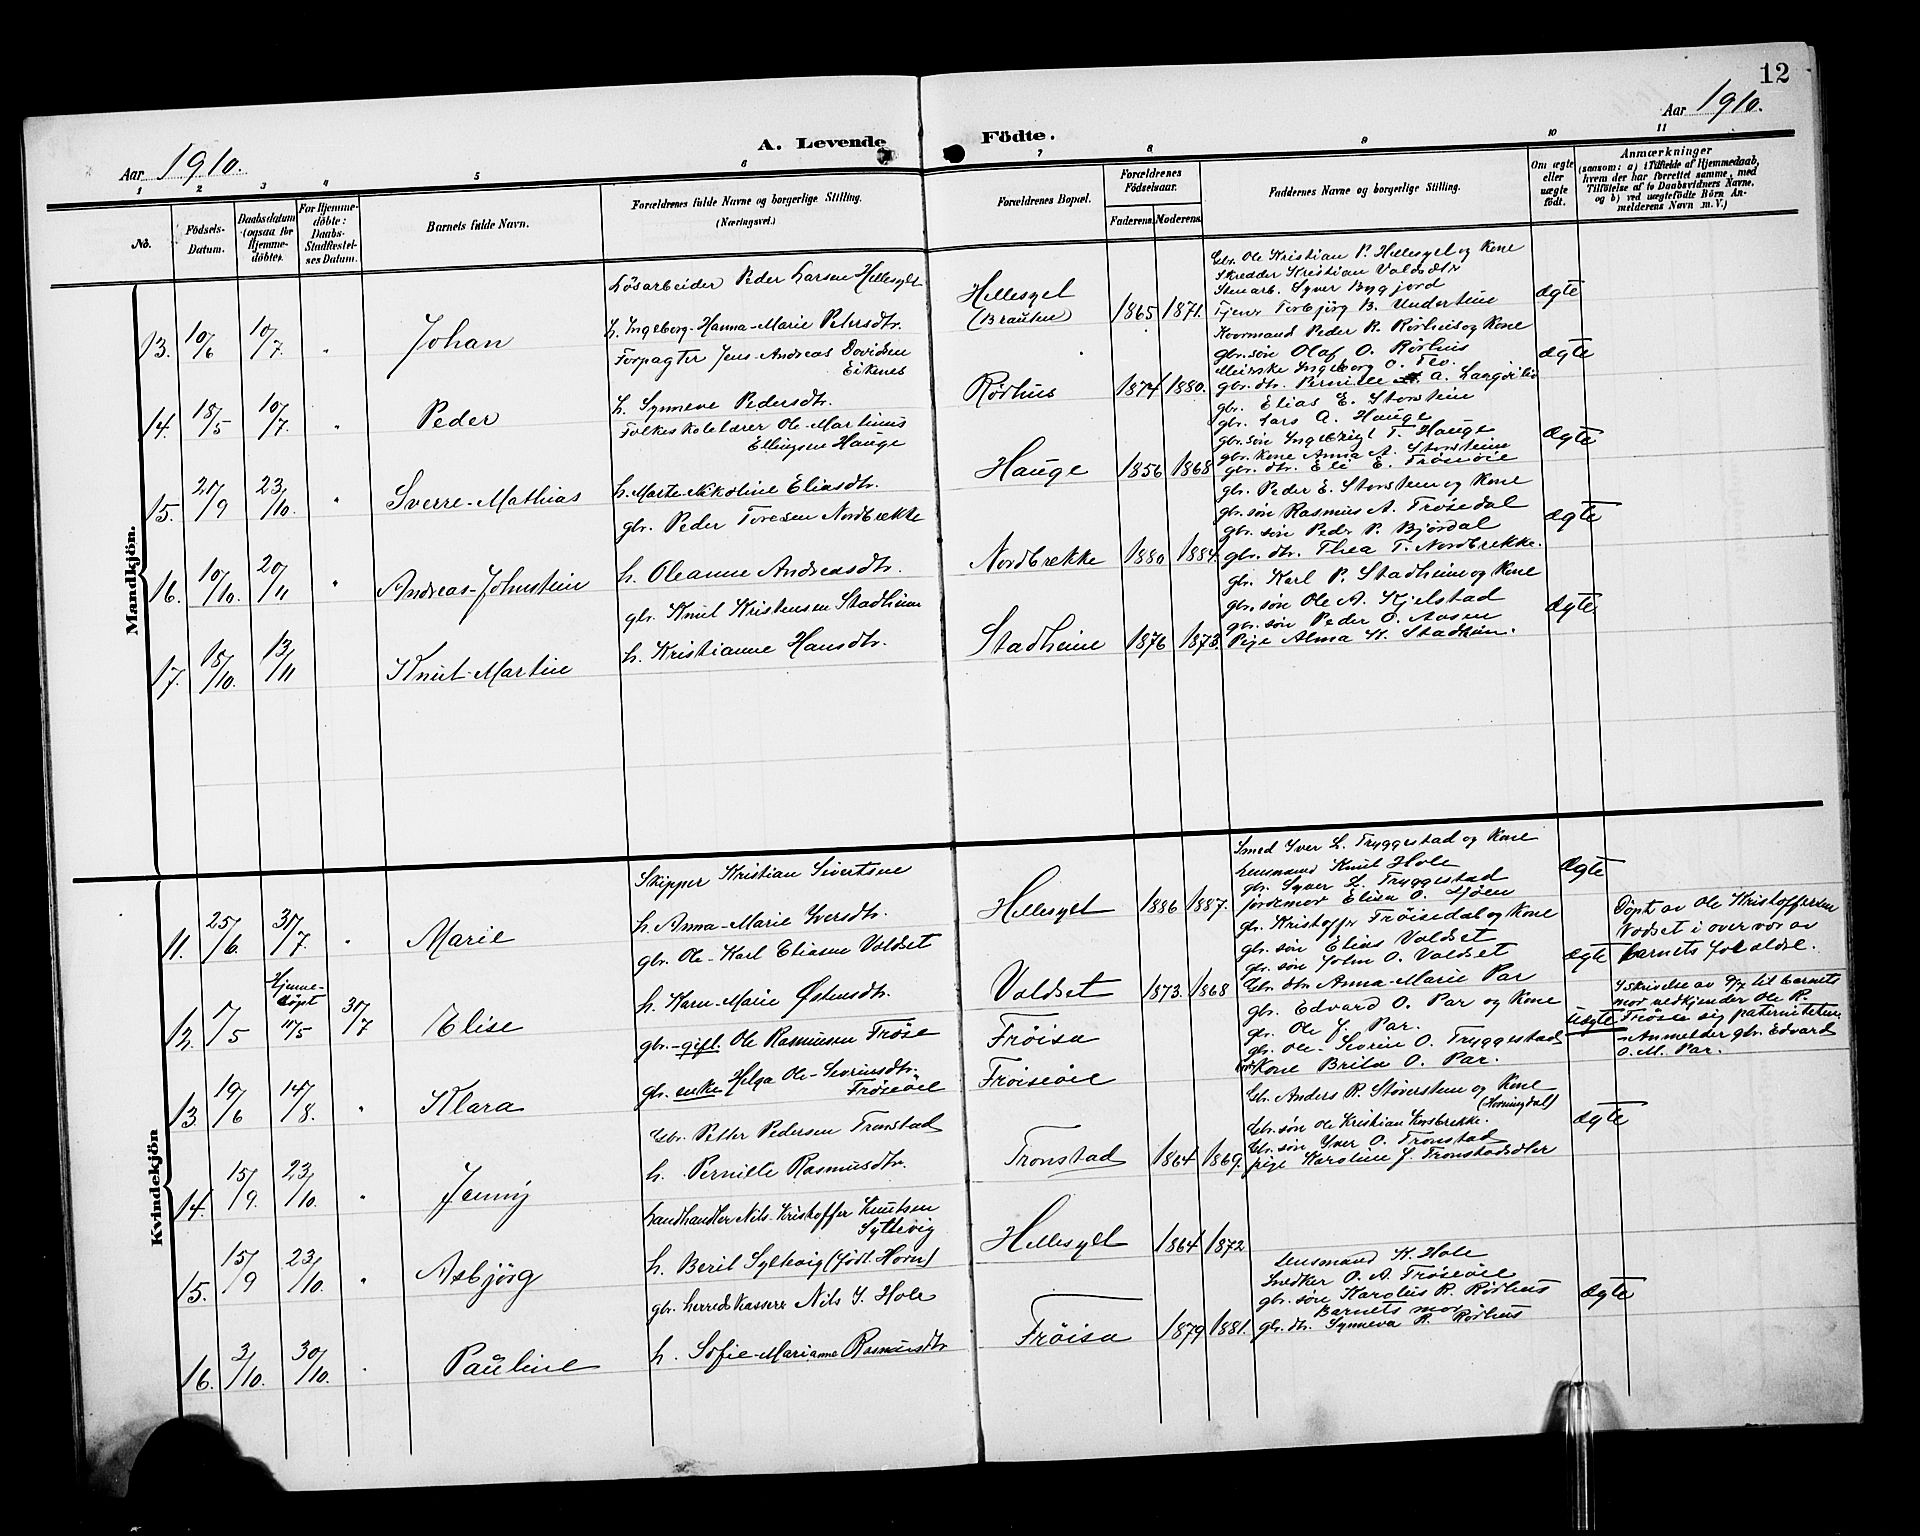 12
Aar 1910.
Aar 1910.
A. Levende Födte.
1 2 3 4 5 6 7 8 9 10 11
No.
Födsels-Datum.
Daabsdatum (ogsaa for Hjemme-döbte).
For Hjemme-döbte: Daabs-Stadfæstel-ses Datum.
Barnets fulde Navn.
Forældrenes fulde Navne og borgerlige Stilling.
(Næringsvei.)
Forældrenes Bopæl.
Forældrenes Födselsaar.
Faderens. Moderens.
Faddernes Navne og borgerlige Stilling.
Om ægte eller uægte födt.
Anmærkninger
(saasom: a) i Tilfælde af Hjemmedaab,
hvem der har forrettet samme, med
Tilföielse af to Daabsvidners Navne,
og b) ved uægtefödte Börn An-
melderens Navn m. V.)
Mandkjön.
13. 10/6 10/7 " Johan
Lösarbeider Peder Larsen Hellesylt
h. Ingeborg-Hanna-Marie Petersdtr.
Hellesylt
(Brauten)
1865 1871.
Gbr. Ole Kristian P. Hellesylt og Kone
Skredder Kristian Valdsdtr
Stenarb. Syver Bygjord
Tjener Torbjörg B. Undertun
ægte
14. 18/5 10/7. " Peder
Forpagter Jens-Andreas Davidsen
Eikenes
h. Synneve Pedersdtr.
Rørhus 1874 1880.
Koormand Peder R. Rørhus og Kone
gbr. søn Olaf O. Rørhus
Meierske Ingeborg O. Flo.
gbr. dtr. Pernille A. Langvilis
ægte
15. 21/9 23/10. " Sverre-Mathias
Folkeskolelærer Ole-Martinus
Ellingsen Hauge
h. Marte-Nikoline Eliasdtr.
Hauge 1856 1868
gbr. Elias E. Storstein
gbr. Lars A. Hauge
gbr. søn Ingebrigt T. Hauge
gbr. kone Anna A. Storstein
gbr. dtr. Eli E. Frøisøie
ægte
16. 10/10. 20/11 " Andreas-Johnstein
gbr. Peder Toresen Nordbrekke
h. Oleanne Andreasdtr.
Nordbrekke 1880 1884.
gbr. Peder E. Storstein og Kone
gbr. søn Rasmus A. Frøsedal
gbr. søn Peder P. Bjørdal
gbr. dtr. Thea T. Nordbrekke.
ægte
17. 18/10. 13/11 Knut-Martin
gbr. Knut Kristensen Stadheim
h. Kristianne Hansdtr.
Stadheim 1876 1873.
gbr. Karl P. Stadheim og Kone
gbr. søn Ole A. Kjelstad
gbr. søn Peder O. Aasen
Pige Alma K. Stadheim.
ægte
Kvindekjön
11. 25/6. 31/7. " Marie
Skipper Kristian Sivertsen
h. Anna-Marie Iversdtr.
Hellesylt 1886 1887.
Smed Iver L. Tryggestad og Kone
Lensmand Knut Hole
gbr. Syver L. Tryggestad
jordemor Elisa O. Sjøen
ægte
12. 1/5 Hjemme-döpt 11/5 31/7 Elise
gbr. Ole-Karl Eliasen Valdset
h. Karen-Marie Østensdtr.
Valdset 1873. 1868
gbr. Kristoffer Frøisedal og Kone
gbr. søn Elias Valdset
gbr. søn John O. Valdset
Gbr. dtr. Anna-Marie Par
ægte
Döpt av Ole Kristoffersen
Vodset i overvær av
barnets forældre.
13. 19/6 14/8. " Klara
gbr.-gift. Ole Rasmussen Frøise
gbr. enke Helga Ole-Severinsdtr.
Frøiseøie
Frøisa
Frøiseøie
gbr. Edvard O. Par og Kone
gbr. Ole J. Par.
gbr. Ole-Severin O. Tryggestad
Kone Brita O. Par.
uægte
I skrivelse av 9/7 til barnets
mor vedkjender Ole R.
Frøise sig paterniteten.
-Anmelder gbr. Edvard
O. M. Par.
14. 15/9. 23/10. " Jenny
Gbr. Petter Pedersen Tronstad
h. Pernille Rasmusdtr.
Tronstad 1864 1869.
Gbr. Anders R. Støverstein og Kone
(Horningdal)
Gbr. søn Ole Kristian Korsbrekke.
Gbr. søn Iver O. Tronstad
pige Karoline J. Tronstadsdtr
ægte
15. 15/9 23/10. " Asbjörg
Landhandler Nils-Kristoffer Knutsen
Syltevig
h. Berit Syltevig (född Horn)
Hellesylt 1864 1872
16. 3/10. 30/10. " Pauline
gbr. herredskasserer Nils J. Hole
h. Sofie-Marianne Rasmusdtr
Frøisa 1879 1881.
Lensmand K. Hole
Snedker O. A. Frøiseøie
gbr. søn Karolus R. Rørhus
Barnets mor
gbr. dtr. Synneva R. Rørhus
ægte